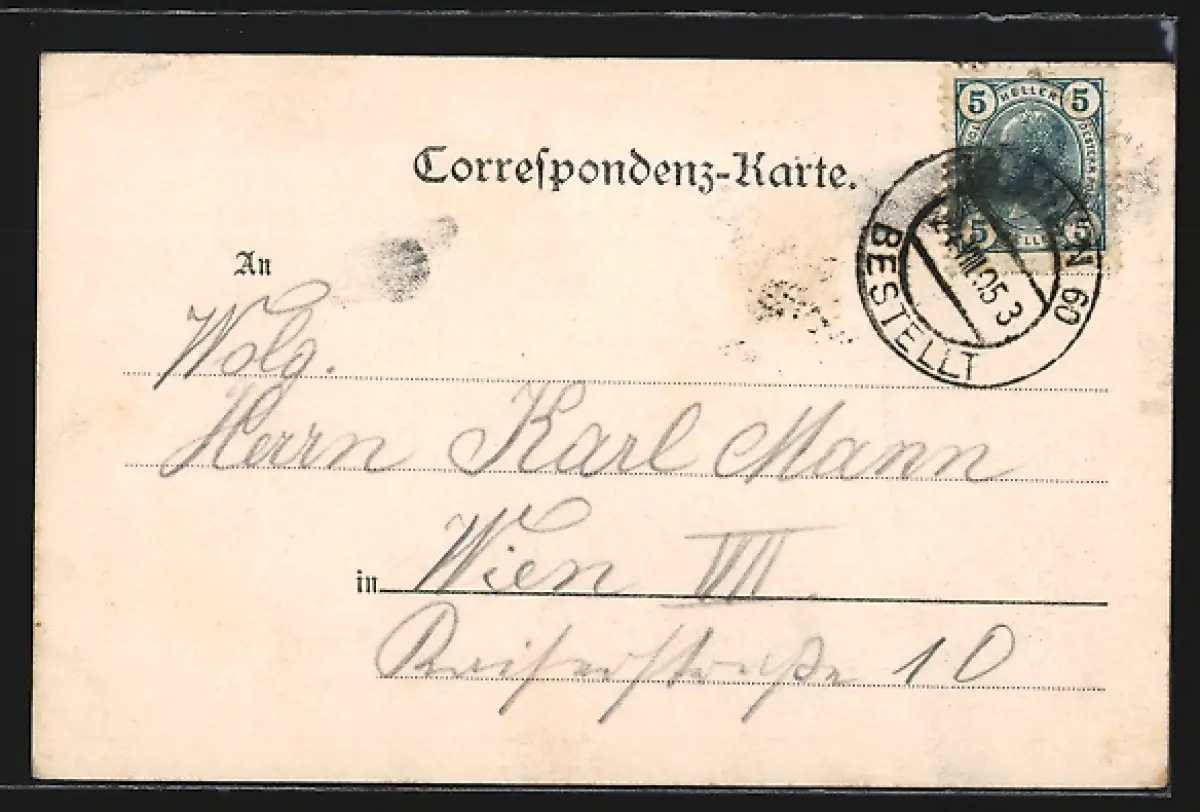 5 HELLER 5
Correspondenz-Karte.
5 HELLER 5
An
BESTELLT
VII.05 3
60
Wolg.
Herrn Karl Mann
in Wien VII.
10